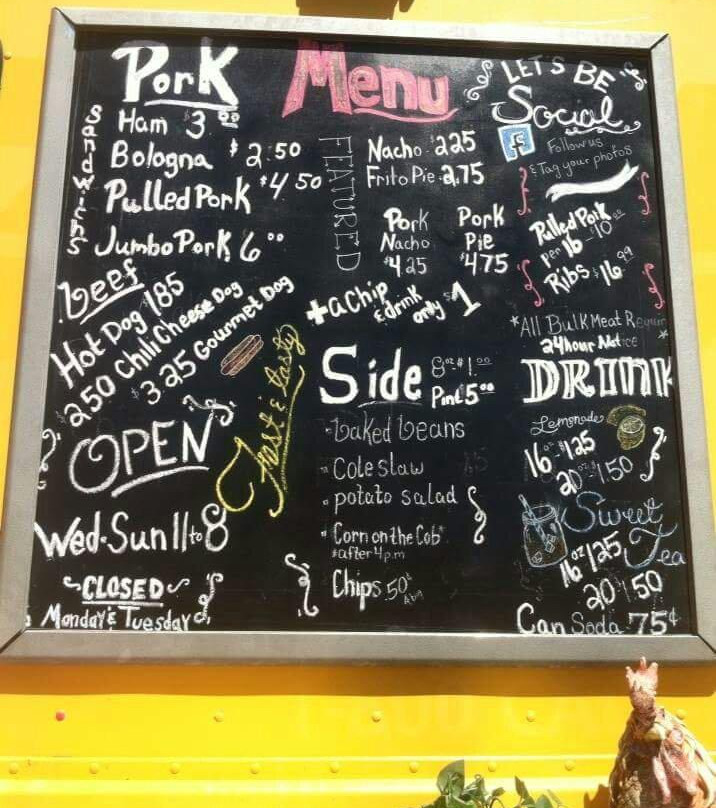 Pork
Sandwichs
Ham 3.00
Bologna $2.50
Pulled Pork $4 50
Jumbo Pork 6 00
beef
Hot Dog 185
250 Chili Cheese Dog
$3 25 Gourmet Dog
Fast & tasty
OPEN
Wed-Sun 11 to 8
CLOSED
Monday & Tuesday
Menu
FEATURED
Nacho 225
Frito Pie 2.75
Pork Nacho $4 25
Pork Pie $475
+ a Chip & drink only $1
Side 8oz $1.00
Pint 5.00
baked beans
Coleslaw
potato salad
Corn on the Cob*
*after 4 p.m
Chips 50¢
LETS BE
Social
f
Follow us
& Tag your photos
Pulled Pork
per lb - 10.00
Ribs $16.99
*All Bulk Meat
24 hour Notice *
DRINK
Lemonade
16oz $125
20oz $1.50
Sweet
Tea
16oz 125
20 150
Can Soda 75¢